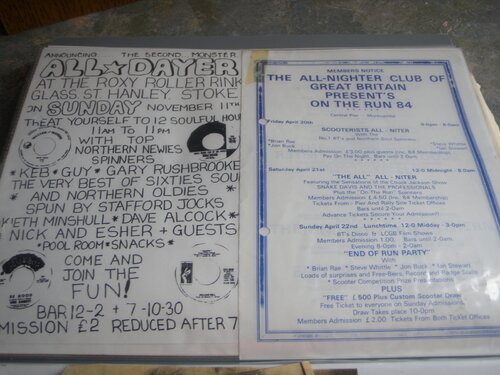 ANNOUNCING THE SECOND MONSTER
ALL★DAYER
AT THE ROXY ROLLER RINK
GLASS ST. HANLEY STOKE
ON SUNDAY NOVEMBER 11TH
TREAT YOURSELF TO 12 SOULFUL HOU
11AM TO 11PM
WITH TOP
NORTHERN NEWIES
SPINNERS
*KEB*GUY*GARY RUSHBROOKE
THE VERY BEST OF SIXTIES SOU
* AND NORTHERN OLDIES *
SPUN BY STAFFORD JOCKS
KEITH MINSHULL*DAVE ALCOCK*
NICK AND ESHER + GUESTS
*POOL ROOM*SNACKS*
COME AND
JOIN THE
FUN!
BAR 12-2 + 7-10-30
MISSION £2 REDUCED AFTER 7
MEMBERS NOTICE
THE ALL-NIGHTER CLUB OF
GREAT BRITAIN
PRESENT'S
ON THE RUN 84
Central Pier - Morecambe
Friday April 20th
8-0pm - 8-0am
SCOOTERISTS ALL - NITER
With The
No.1 BT's and Northern Soul Spinners
*Brian Rae
*Steve Whittle
*Jon Buck
*Ian Stewart
Members Admission £3.00 plus guests
Pay On The Night. Bars until 2-0am
Saturday April 21st
12-0 Midnight - 8-0am
"THE ALL" ALL - NITER
Featuring the Sensations of the Chuck Jackson Show
SNAKE DAVIS AND THE PROFESSIONALS
Plus the "On The Run" Spinners
Members Admission £4.50 inc. 84 Membership
Tickets From Pay And Rally Site Ticket Offices
Bars until 2-0am
Advance Tickets Secure Your Admission!!
Sunday April 22nd Lunchtime 12-0 Midday - 3-0pm
BT's Disco & LCGB Film Shows
Members Admission 1.00. Bars until 2-0am
Evening 8-0pm - 2-0am
"END OF RUN PARTY"
With
* Brian Rae * Steve Whittle * Jon Buck * Ian Stewart
Loads of surprises and Free-Bies, Record and Badge Stalls
* Scooter Competition Prize Presentations
PLUS
"FREE" £500 Plus Custom Scooter Draw
Free Ticket to everyone on Sunday Admissions
Draw Takes place 10-0pm.
Members Admission £2.00. Tickets From Both Ticket Offices